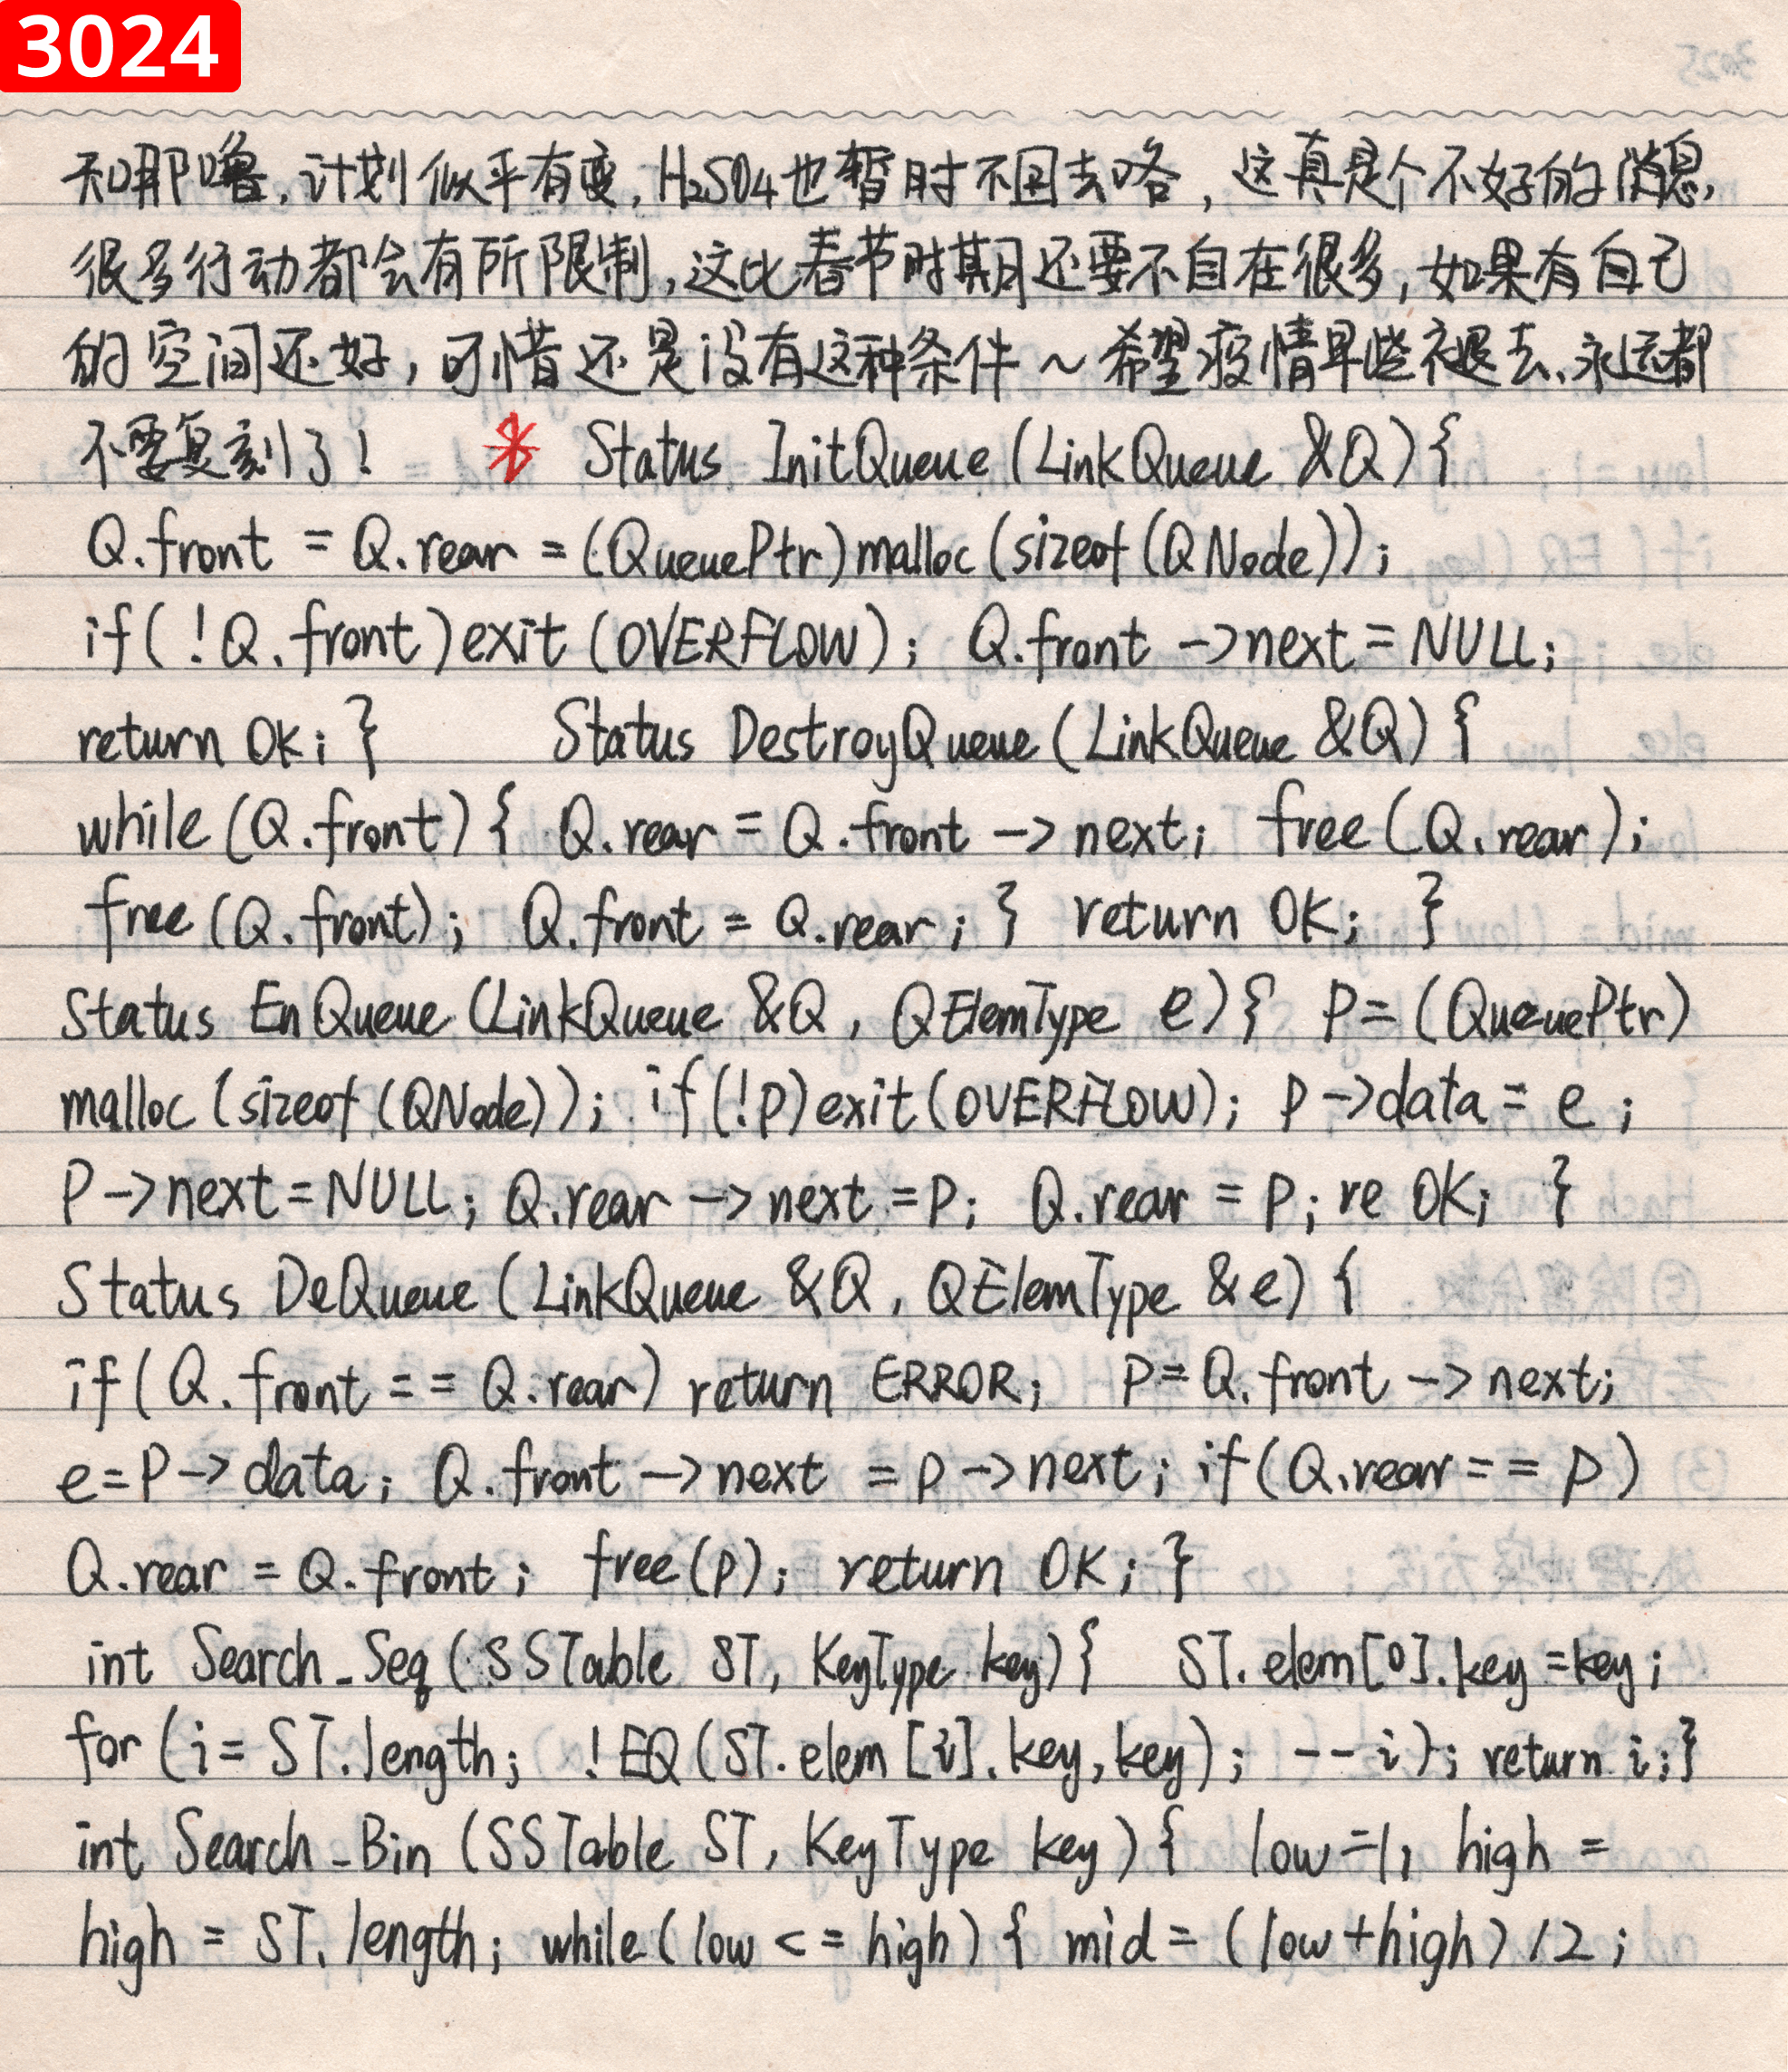 3024
和那噜,计划似乎有变,H₂SO4也暂时不回去咯,这真是个不好的消息,
很多行动都会有所限制,这比春节时期还要不自在很多,如果有自己
的空间还好,可惜还是没有这种条件~希望疫情早些褪去、永远都
不要复刻了! * Status InitQueue(LinkQueue &Q){
Q.front = Q.rear = (QueuePtr)malloc(sizeof(QNode));
if(!Q.front)exit(OVERFLOW); Q.front ->next = NULL;
return OK; } Status DestroyQueue(LinkQueue &Q){
while(Q.front){ Q.rear = Q.front -> next; free(Q.rear);
free(Q.front); Q.front = Q.rear; } return OK; }
Status EnQueue(LinkQueue &Q, QElemType e){ P=(QueuePtr)
malloc(sizeof(QNode)); if(!p)exit(OVERFLOW); p->data = e;
P->next=NULL; Q.rear -> next =P; Q.rear = P; re OK; }
Status DeQueue(LinkQueue &Q, QElemType &e){
if(Q.front == Q.rear) return ERROR; P=Q.front -> next;
e=P->data; Q.front ->next = p->next; if(Q.rear== p)
Q.rear = Q.front; free(p); return OK; }
int Search_Seq(SSTable ST, KeyType key){ ST.elem[0].key=key;
for(i= ST.length; !EQ(ST.elem[i].key,key); --i); return i;}
int Search_Bin(SSTable ST, KeyType key){ low=1; high =
high = ST.length; while(low <= high){ mid = (low+high)/2;